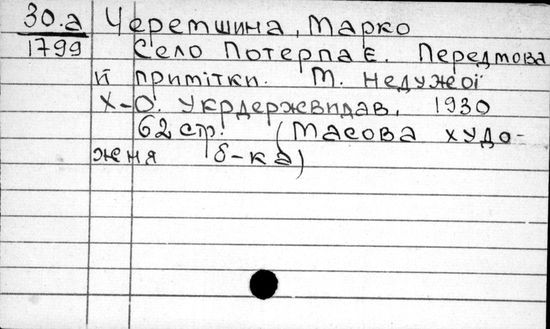 30.а Черемшина, Марко
1799 Село Потерпає. Передмова
й примітки. М. Недужої
Х-О. Укрдержвидав, 1930
62 стр. (Масова худо-
жня б-ка)